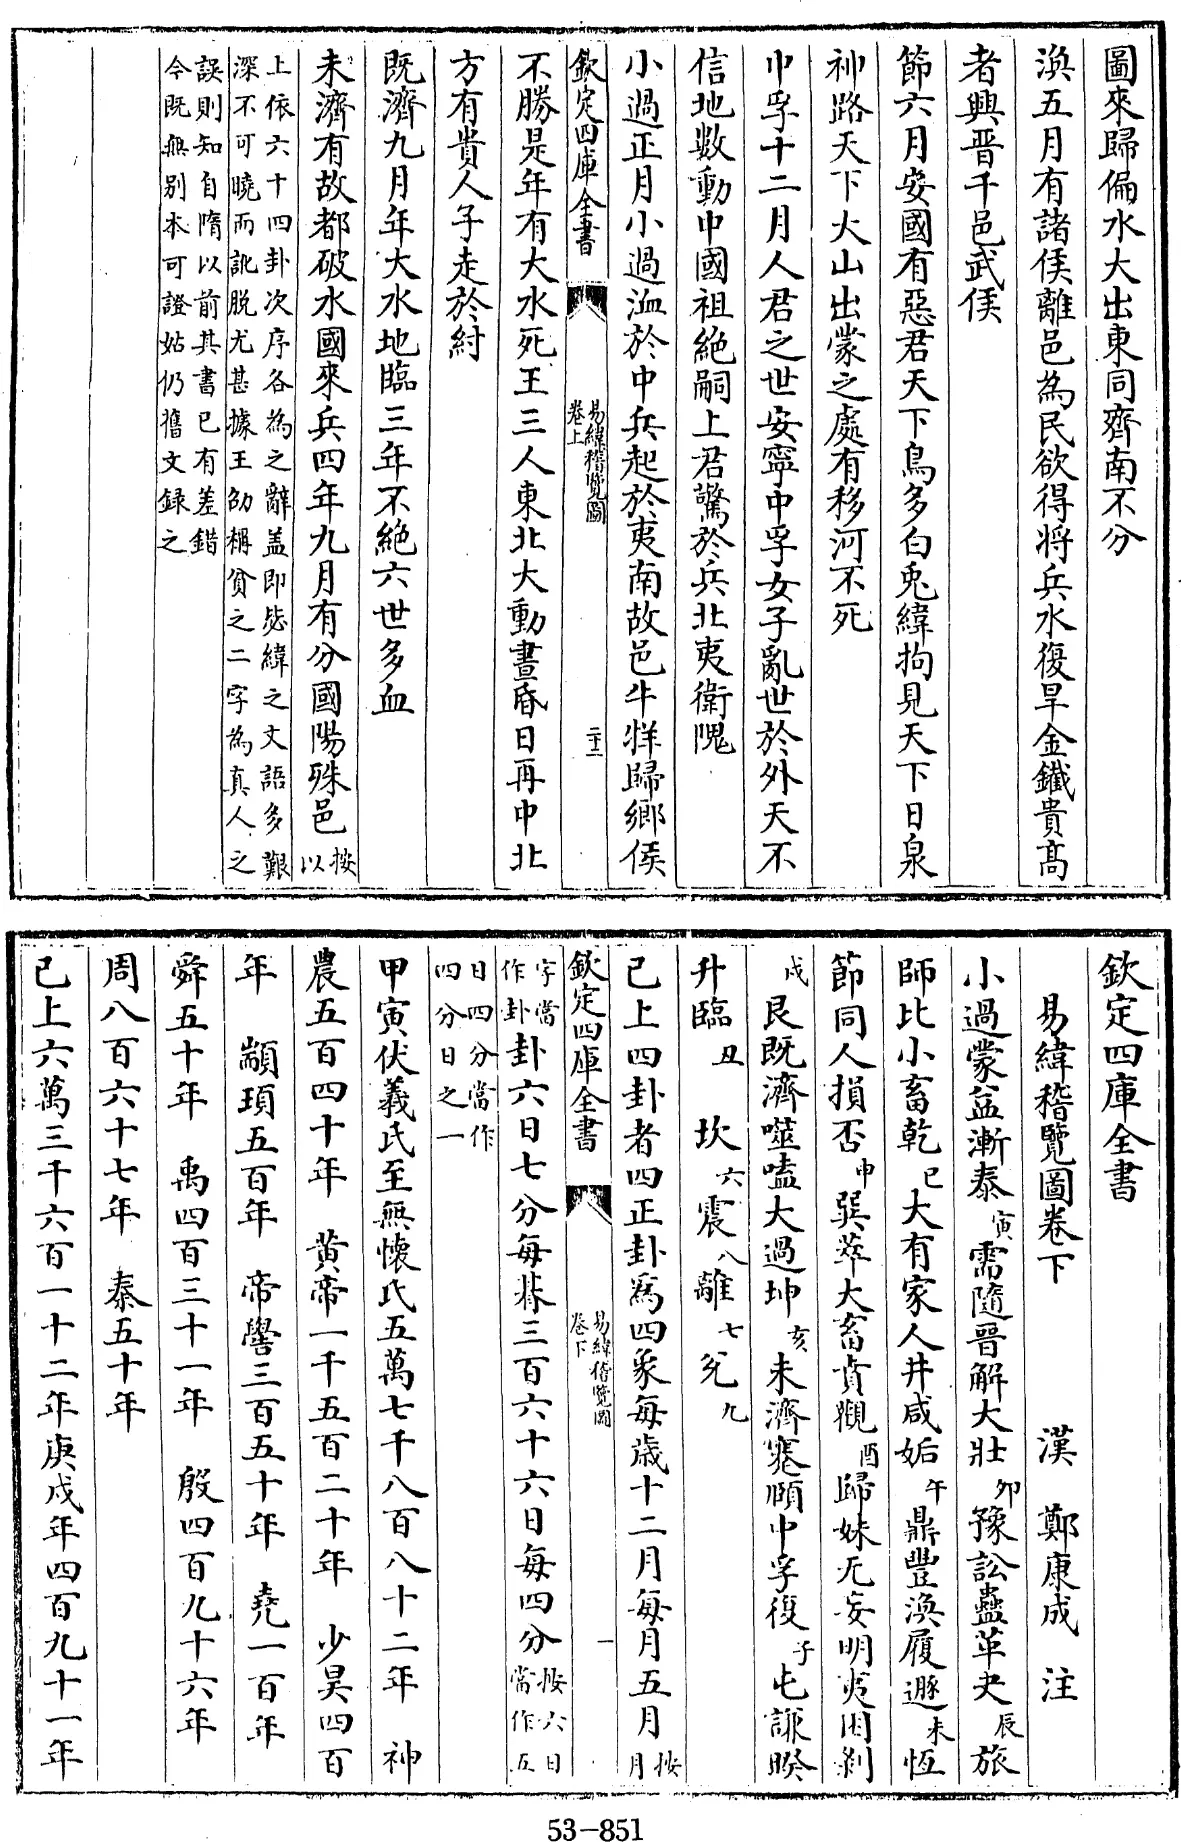 圖來歸偏水大出東同齊南不分
渙五月有諸侯離邑為民欲得將兵水復旱金鐵貴髙
者興晋千邑武侯
節六月安國有惡君天下鳥多白兎緯拘見天下日泉
神路天下大山出蒙之處有移河不死
中孚十二月人君之世安寧中孚女子亂世於外天不
信地數動中國祖絶嗣上君驚於兵北夷衛隗
小過正月小過洫於中兵起於夷南故邑牛牂歸鄉侯
欽定四庫全書 易緯稽覽圖卷上 二十二
不勝是年有大水死王三人東北大動晝昏日再中北
方有貴人子走於紂
既濟九月年大水地臨三年不絶六世多血
未濟有故都破水國來兵四年九月有分國陽殊邑 按以
上依六十四卦次序各為之辭盖即毖緯之文語多艱
深不可曉而訛脱尤甚據王劭稱貧之二字為真人之
誤則知自隋以前其書已有差錯
今既無别本可證姑仍舊文録之
欽定四庫全書
易緯稽覽圖卷下 漢 鄭康成 注
小過蒙益漸泰寅需隨晉解大壯卯豫訟蠱革夬辰旅
師比小畜乾巳大有家人井咸姤午鼎豐渙履遯未恆
節同人損否申巽萃大畜賁觀酉歸妹无妄明夷困剥
戌艮既濟噬嗑大過坤亥未濟蹇頤中孚復子屯謙睽
升臨丑 坎六震八離七兌九
已上四卦者四正卦為四象每歳十二月每月五月按月
欽定四庫全書 易緯稽覽圖卷下 一
字當作卦卦六日七分每朞三百六十六日每四分按六日當作五
日四分當作
四分日之一
甲寅伏羲氏至無懷氏五萬七千八百八十二年 神
農五百四十年 黄帝一千五百二十年 少昊四百
年 顓頊五百年 帝嚳三百五十年 堯一百年
舜五十年 禹四百三十一年 殷四百九十六年
周八百六十七年 秦五十年
已上六萬三千六百一十二年庚戌年四百九十一年
53-851